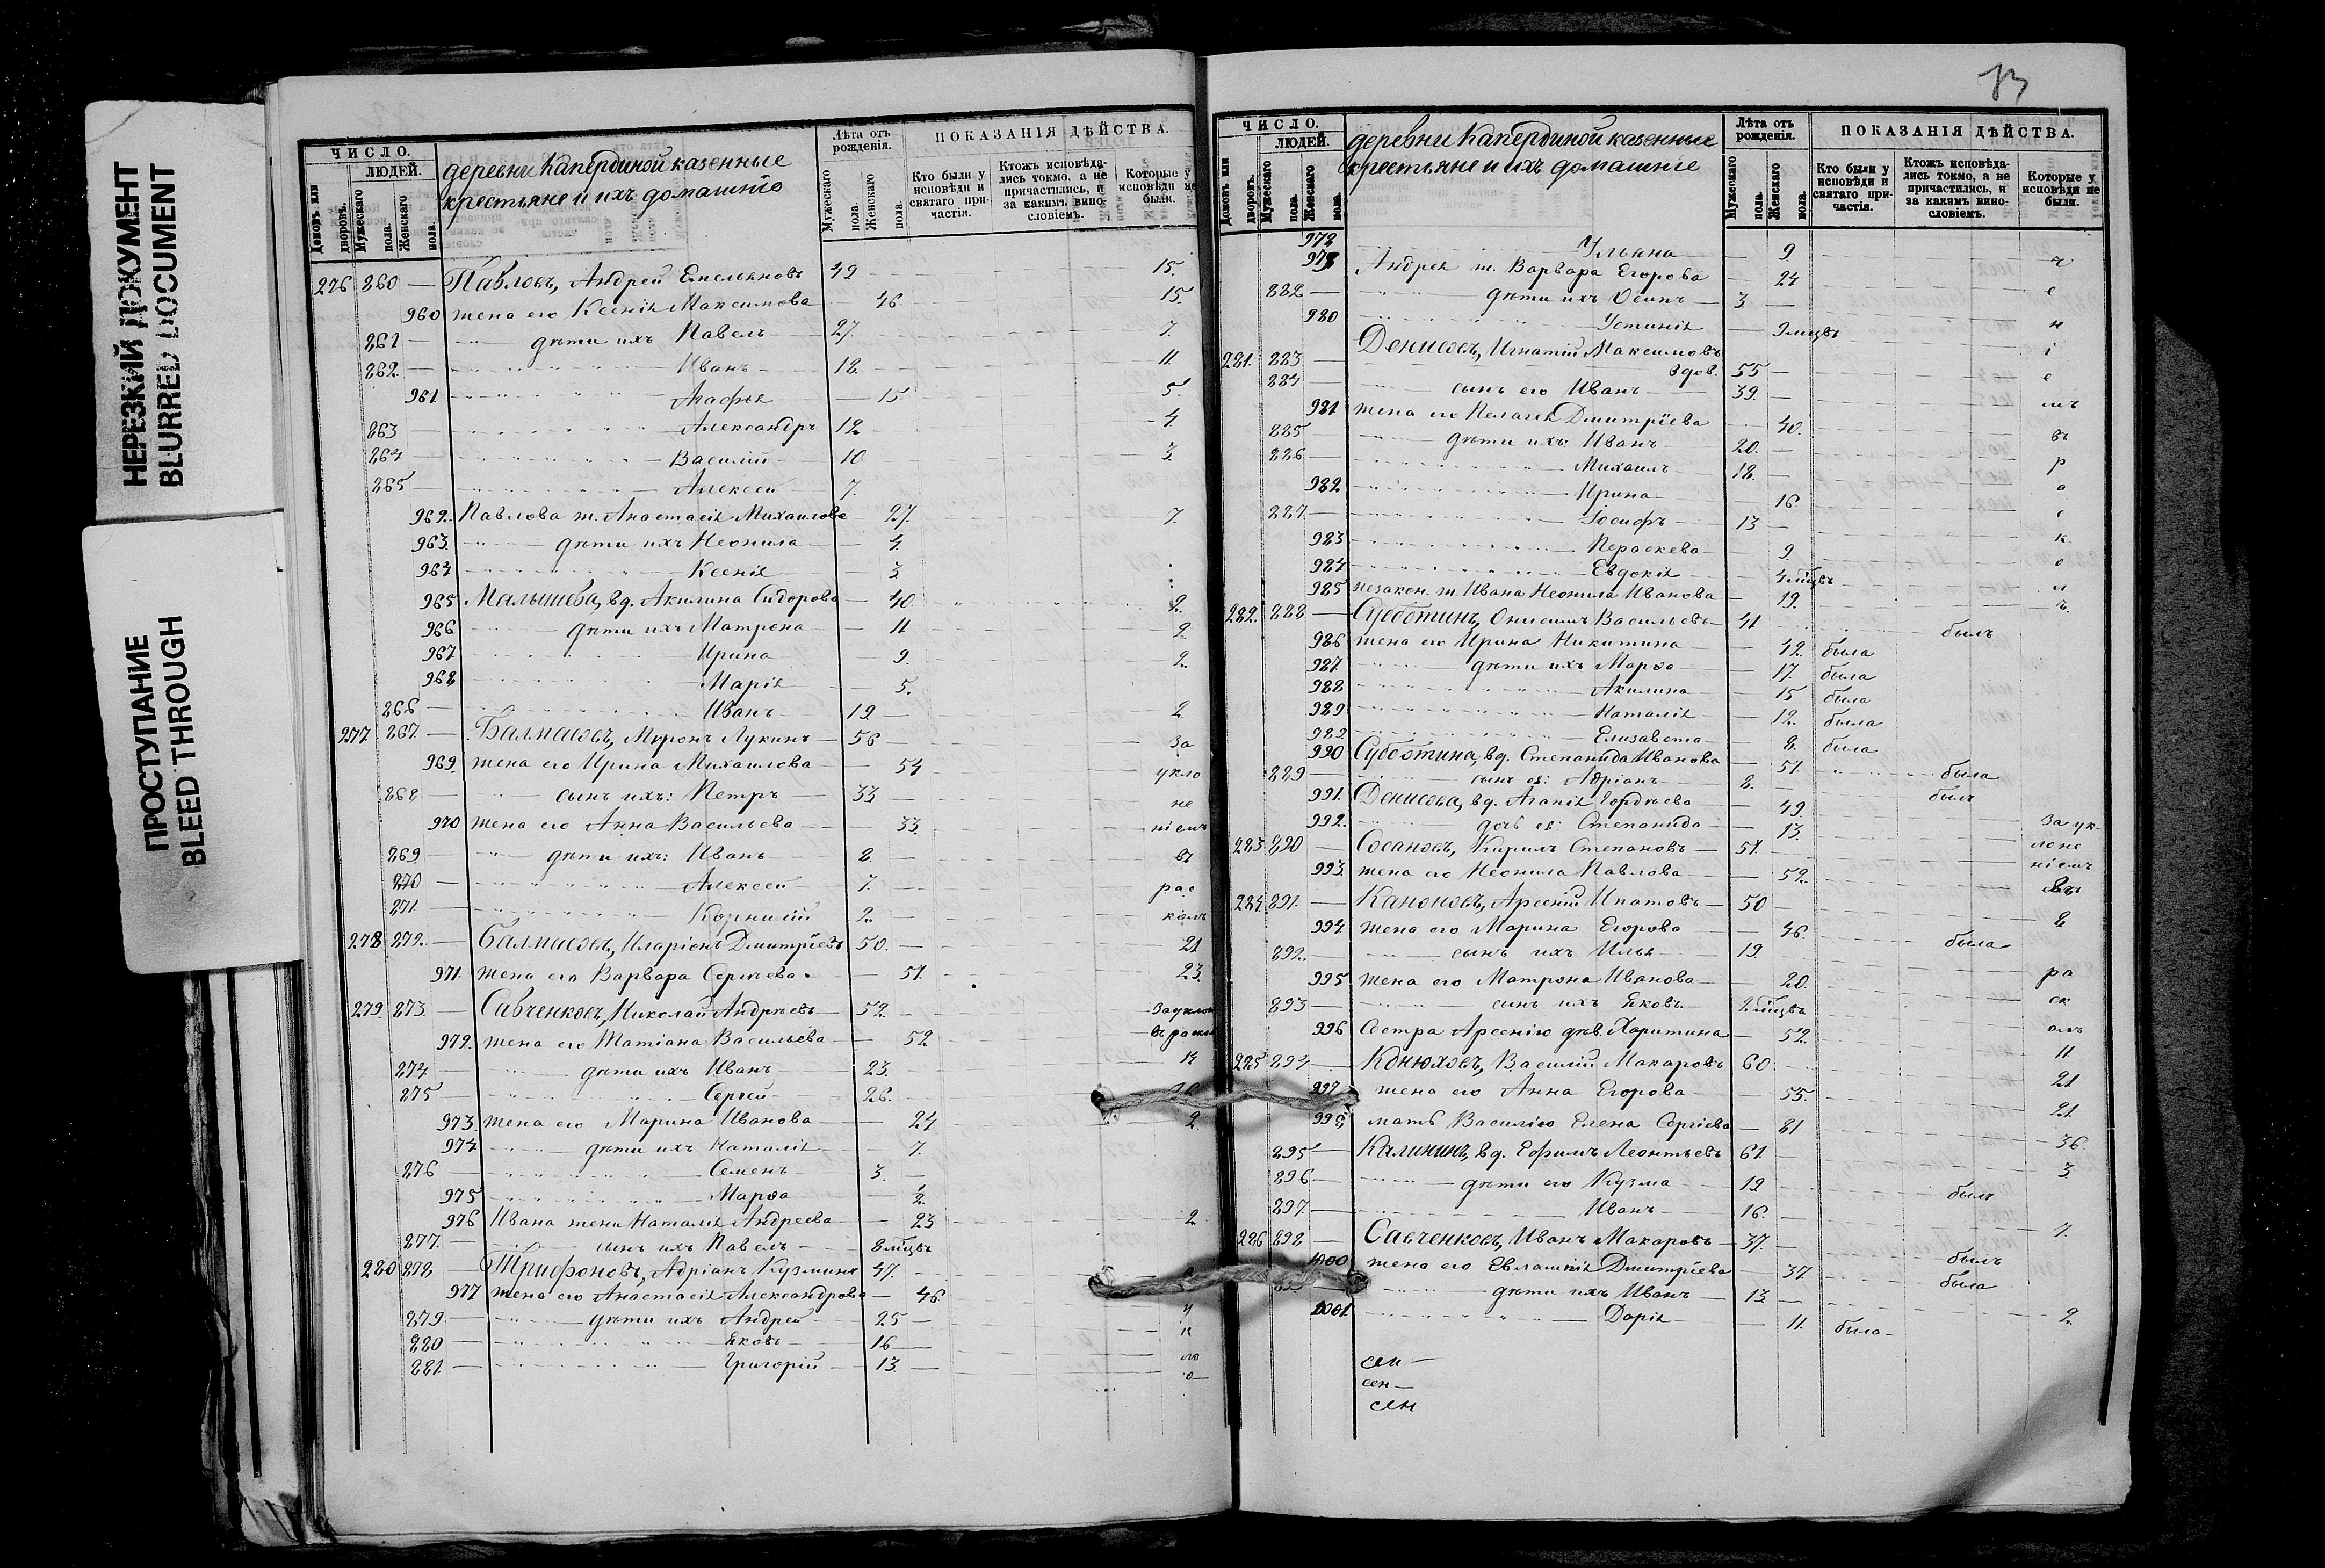 НЕРЕЗКИЙ ДОКУМЕНТ
BLURRED DOCUMENT
ПРОСТУПАНИЕ
BLEED THROUGH
ЧИСЛО.
ЛЮДЕЙ.
Домовъ или дворовъ.
Мужескаго пола.
Женскаго пола.
деревни Капердиной казенные
крестьяне и ихъ домашніе
Лѣта отъ рожденія.
Мужескаго пола.
Женскаго пола.
ПОКАЗАНІЯ ДѢЙСТВА.
Кто были у исповѣди и святаго причастія.
Ктожъ исповѣдались токмо, а не причастились, и за какимъ винословіемъ.
Которые у исповѣди не были.
276 860 Павловъ, Андрей Емельяновъ 49 15.
960 жена его Ксенія Максимова 46 15.
861 дѣти ихъ Павелъ 27. 7.
862. Иванъ 18. 11
961 Агафья 15 5.
863 Александръ 12 4
864 Василій 10 3.
865 Алексей 7.
962. Павлова ж. Анастасія Михаилова 27. 7
963. дѣти ихъ Неонила 4.
964 Ксенія 3
965 Малышева, вд. Акилина Сидорова 40 2.
966 дѣти ихъ Матрона 11 2
967 Ирина 9. 2.
968 Марія 5.
866 Иванъ 19 2
277 867. Балмасовъ, Миронъ Лукинъ 56 за
969. жена его Ирина Михаилова 54 укло
868 сынъ ихъ: Петръ 33 не
970 жена его Анна Васильева 33. ніемъ
869 дѣти ихъ: Иванъ 8 въ
870 Алексей 7. рас
871 Корнилій 2. колъ
278 872. Балмасовъ, Иларіонъ Дмитріевъ 50. 21
971. жена его Варвара Сергѣева 51. 23.
279. 873. Савченковъ, Николай Андрѣевъ 52. за уклон
972. жена его Татіана Васильева 52 въ раскол
874 дѣти ихъ Иванъ 23.
875 Сергѣй 26.
973. жена его Марина Иванова 24 2.
974 дѣти ихъ Наталія 7.
876 Семенъ 3.
975 Марѳа 2
976 Ивана жена Наталія Андреева 23 2
877. сынъ ихъ Павелъ 8 мѣцвъ
280 878 Трифоновъ, Адріанъ Кузминъ 47.
977 жена его Анастасія Александрова 46.
879. дѣти ихъ Андрей 25
880 Яковъ 16
881. Григорій 13.
13
ЧИСЛО.
ЛЮДЕЙ.
Домовъ или дворовъ.
Мужескаго пола.
Женскаго пола.
деревни Капердиной казенные
крестьяне и ихъ домашніе
Лѣта отъ рожденія.
Мужескаго пола.
Женскаго пола.
ПОКАЗАНІЯ ДѢЙСТВА.
Кто были у исповѣди и святаго причастія.
Ктожъ исповѣдались токмо, а не причастились, и за какимъ винословіемъ.
Которые у исповѣди не были.
978 Ульяна 9
979 Андрея ж. Варвара Егорова 24
882 дѣти ихъ Осипъ 3 е
980 Устинія 9 мцвъ н
281. 883 Денисовъ, Игнатій Максимовъ і
вдов. 55 е
884 сынъ его Иванъ 39. мъ
981 жена его Пелагея Дмитріева 40. въ
885 дѣти ихъ Иванъ 20. р
886 Михаилъ 18. а
982 Ирина 16. с
887. Іосифъ 13 к.
983 Пераскева 9 о
984 Евдокія 4 мѣцвъ л
985 незакон. ж. Ивана Неонила Иванова 19. ъ.
282. 888 Субботинъ, Онисимъ Васильевъ 41 былъ
986 жена его Ирина Никитина 42 была
987. дѣти ихъ Марѳа 17. была
988 Акилина 15 была
989 Наталія 12. была
989. Елизавета 8. была
990 Субботина, вд. Степанида Иванова 51. была
889 сынъ ея: Адріанъ 8. былъ
991. Денисова, вд. Агапія Гордѣева 49.
992. дочь ея: Степанида 13. за ук
283 890 Сосановъ, Кирилъ Степановъ 51. лоне
993. жена его Неонила Павлова 52. ніемъ
284. 891. Каноновъ, Арсеній Ипатовъ 50 въ
994. жена его Марина Егорова 46. 8
892. сынъ ихъ Илья 19. была
995 жена его Матрона Иванова 20. ра
893 сынъ ихъ Яковъ 2 мѣцвъ ск
996 Сестра Арсенію дѣв. Харитина 52. олъ
285 894 Конюховъ, Василій Макаровъ 60. 11
997 жена его Анна Егорова 55. 21
998 мать Василію Елена Сергіева 81 21.
895 Калининъ, вд. Ефимъ Леонтьевъ 61. 36.
896 дѣти его Кузма 19 3
897 Иванъ 16. былъ
286 898 Савченковъ, Иванъ Макаровъ 37. 7.
1000 жена его Евлампія Дмитріева 37. былъ
дѣти ихъ Иванъ 13. была
1001. Дарія 11. была 2.
сен
сен
сен